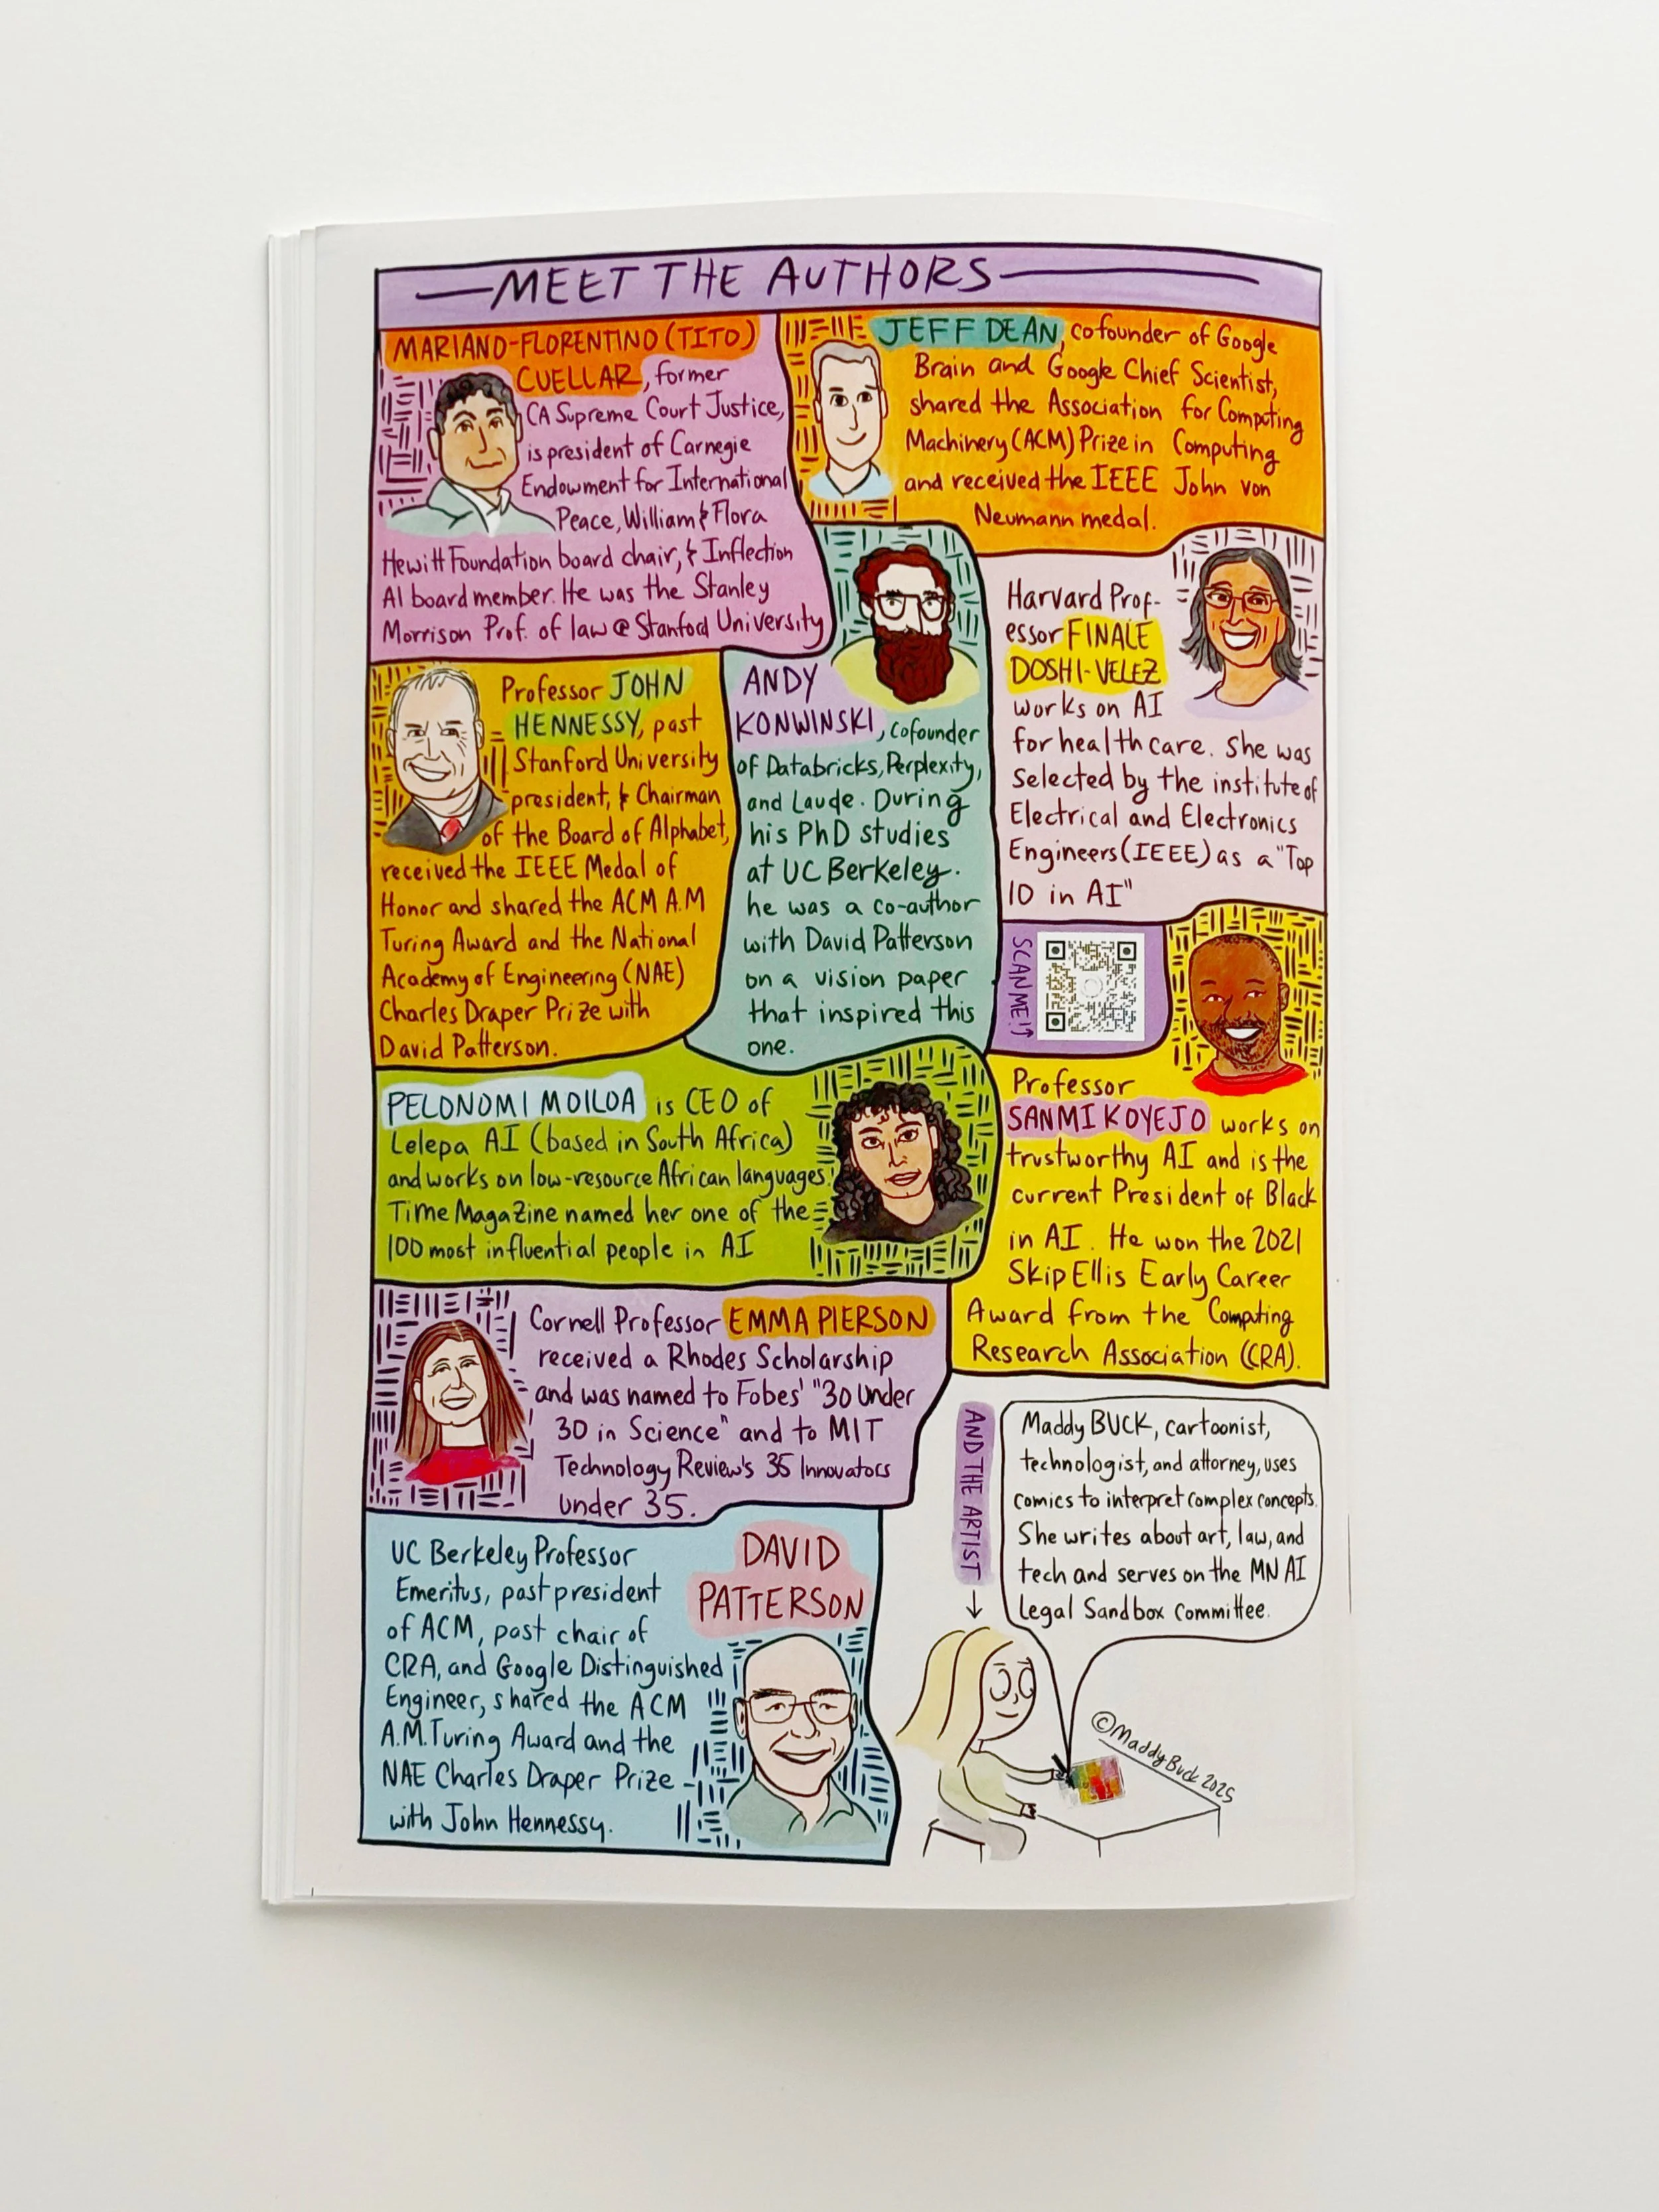 MEET THE AUTHORS
MARIANO-FLORENTINO (TITO)
CUELLAR, former
CA Supreme Court Justice,
is president of Carnegie
Endowment for International
Peace, William & Flora
Hewitt Foundation board chair, & Inflection
AI board member. He was the Stanley
Morrison Prof. of law @ Stanford University
JEFF DEAN, cofounder of Google
Brain and Google Chief Scientist,
shared the Association for Computing
Machinery (ACM) Prize in Computing
and received the IEEE John von
Neumann medal.
Professor JOHN
HENNESSY, past
Stanford University
president, & Chairman
of the Board of Alphabet,
received the IEEE Medal of
Honor and shared the ACM A.M
Turing Award and the National
Academy of Engineering (NAE)
Charles Draper Prize with
David Patterson.
ANDY
KONWINSKI, cofounder
of Databricks, Perplexity,
and Laude. During
his PhD studies
at UC Berkeley.
he was a co-author
with David Patterson
on a vision paper
that inspired this
one.
Harvard Prof-
essor FINALE
DOSHI-VELEZ
works on AI
for health care. She was
selected by the institute of
Electrical and Electronics
Engineers (IEEE) as a "Top
10 in AI"
SCAN ME!
Professor
SANMI KOYEJO works on
trustworthy AI and is the
current President of Black
in AI. He won the 2021
Skip Ellis Early Career
Award from the Computing
Research Association (CRA).
PELONOMI MOILOA is CEO of
Lelepa AI (based in South Africa)
and works on low-resource African languages.
Time Magazine named her one of the
100 most influential people in AI
Cornell Professor EMMA PIERSON
received a Rhodes Scholarship
and was named to Fobes' "30 Under
30 in Science" and to MIT
Technology Review's 35 Innovators
under 35.
UC Berkeley Professor
Emeritus, past president
of ACM, past chair of
CRA, and Google Distinguished
Engineer, shared the ACM
A.M. Turing Award and the
NAE Charles Draper Prize
with John Hennessy.
DAVID
PATTERSON
AND THE ARTIST
Maddy BUCK, cartoonist,
technologist, and attorney, uses
comics to interpret complex concepts.
She writes about art, law, and
tech and serves on the MN AI
Legal Sandbox Committee.
©Maddy Buck 2025